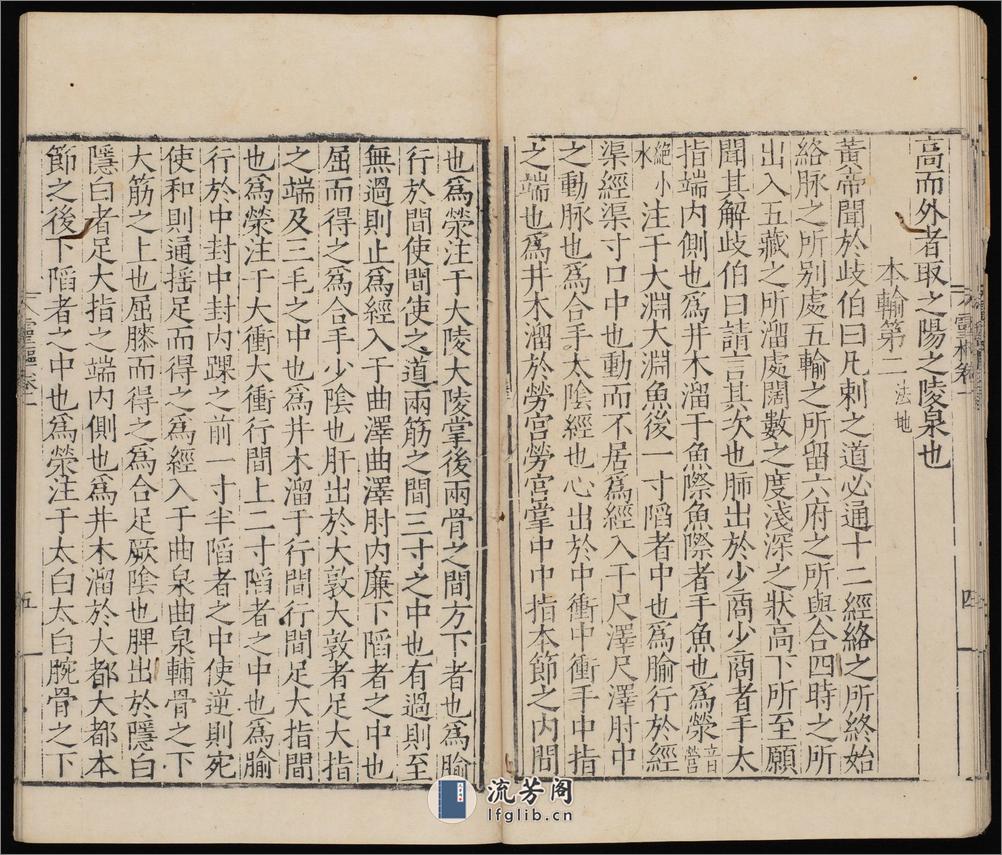 高而外者取之陽之陵泉也
本輸第二法地
黃帝聞於歧伯曰凡刺之道必通十二經絡之所終始
絡脉之所别處五輸之所留六府之所與合四時之所
出入五藏之所溜處闊數之度淺深之狀高下所至願
聞其解歧伯曰請言其次也肺出於少商少商者手太
指端内側也爲井木溜于魚際魚際者手魚也爲滎音營
絶小水注于大淵大淵魚後一寸陷者中也爲腧行於經
渠經渠寸口中也動而不居爲經入于尺澤尺澤肘中
之動脉也爲合手太陰經也心出於中衝中衝手中指
之端也爲井木溜於勞宫勞宫掌中中指本節之内間
也爲滎注于大陵大陵掌後兩骨之間方下者也爲腧
行於間使間使之道兩筋之間三寸之中也有過則至
無過則止爲經入于曲澤曲澤肘内廉下陷者之中也
屈而得之爲合手少陰也肝出於大敦大敦者足大指
之端及三毛之中也爲井木溜于行間行間足大指間
也爲滎注于大衝大衝行間上二寸陷者之中也爲腧
行於中封中封内踝之前一寸半陷者之中使逆則宛
使和則通摇足而得之爲經入于曲泉曲泉輔骨之下
大筋之上也屈膝而得之爲合足厥陰也脾出於隱白
隱白者足大指之端内側也爲井木溜於大都大都本
節之後下陷者之中也爲滎注于太白太白腕骨之下
靈樞卷一
四
五
流芳阁
lfglib.cn